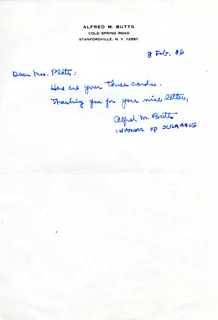 ALFRED M. BUTTS
COLD SPRING ROAD
STANFORDVILLE, N. Y. 12581
8 Feb. 86
Dear Mrs. Platts:
Here are your three cards.
Thanking you for your nice letter,
Alfred M. Butts
INVENTOR OF SCRABBLE